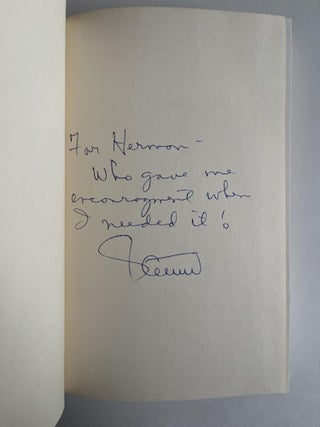 For Herman -
Who gave me
encouragment when
I needed it!